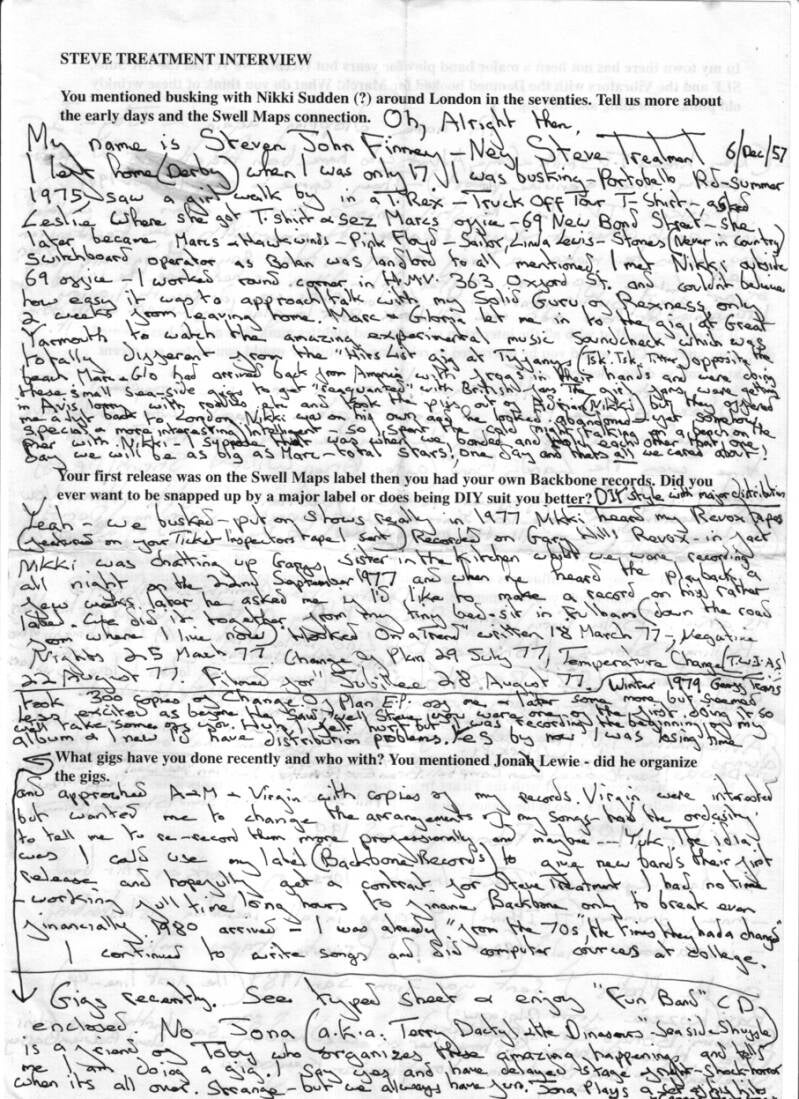 STEVE TREATMENT INTERVIEW
You mentioned busking with Nikki Sudden (?) around London in the seventies. Tell us more about
the early days and the Swell Maps connection. Oh, Alright then,
My name is Steven John Finney - Ney Steve Treatment 6/Dec/57
I left home (Derby) when I was only 17 I was busking - Portobello Rd - Summer
1975 saw a girl walk by in a T.Rex - Truck Off Tour T-Shirt - asked
Leslie where she got T.Shirt & sez Marcs office - 69 New Bond Street - she
later became Marcs & Hawkwinds - Pink Floyd - Sailor, Linda Lewis - Stones (Never in Country)
Switchboard operator as Bolan was landlord to all mentioned. I met Nikki outside
69 office - I worked round corner in H.M.V. 363 Oxford St. and couldnt believe
how easy it was to approach/talk with my Solid Guru of Rexness, only
2 weeks from leaving home. Marc & Gloria let me in to the gig at Great
Yarmouth to watch the amazing experimental music soundcheck which was
totally different from the "Hits List gig at Tiffanys (Tsk. Tsk. Titter) opposite the
beach. Marc & Glo had arrived back from America with in their hands and were doing
these small sea-side gigs to get with British fans. The girl fans were getting
in Avis lorry with roadies etc and took the piss out of Adrian (Nikki) but they offered
me a lift back to London. Nikki was on his own and he looked abandoned - yet somehow
special & more interesting/intelligent - so I spent the cold night talking on a beach on the
Pier with Nikki - I suppose that was when we bonded and told each other that one
Day we will be as big as Marc - total stars, one day and thats all we cared about!
Your first release was on the Swell Maps label then you had your own Backbone records. Did you
ever want to be snapped up by a major label or does being DIY suit you better? DIY style with major distribution
Yeah - we busked - put on shows really in 1977 Nikki heard my Revox tapes
(featured on your Ticket Inspectors tape I sent) Recorded on Gary Hills Revox - in fact
Nikki was chatting up Garys sister in the kitchen whilst we were recording
all night on the 22nd September 1977 and when he heard the playback, a
few weeks later he asked me if I'd like to make a record on his rather
label. We did it together from my tiny bed-sit in Fulham (down the road
from where I live now) "Hooked On a Trend" written 18 March 77 - Negative
Nights 25 March 77. Change of Plan 29 July 77, Temperature Change (T.W.I.A.S)
22 August 77. Filmed for "Jubilee 28 August 77. Winter 1979 Geoff Travis
took 300 copies of Change Of Plan E.P. off me & later some more but seemed
less excited as before the saw "well Steve you were one of the first doing it so
will take some off you. Huh, I felt hurt but I was recording the beginning of my
album & new id have distribution problems. Yes by now I was losing time
What gigs have you done recently and who with? You mentioned Jonah Lewie - did he organize
the gigs.
and approached A+M & Virgin with copies of my records. Virgin were interested
but wanted me to change the arrangements of my songs - had the ordasity
to tell me to re-record them more professionally and maybe --- Yuk. The idea
was I cold use my label (Backbone Records) to give new bands their first
release and hopefully get a contract for Steve Treatment. I had no time
- working full time long hours to finance Backbone only to break even
financially. 1980 arrived - I was already "from the 70s", the times they had a changed"
I continued to write songs and did computer cources at college.
Gigs recently. See typed sheet & enjoy "Fun Band" CD
enclosed. No Jona (a.k.a. Terry Dactyl & the Dinasours" - Seaside Shuffle)
is a friend of Toby who organizes these amazing happenings and tells
me I am doing a gig. I Spy yes and have delayed stage fright - shock horror
when its all over. Strange - but we allways have fun. Jona plays a set of his hits